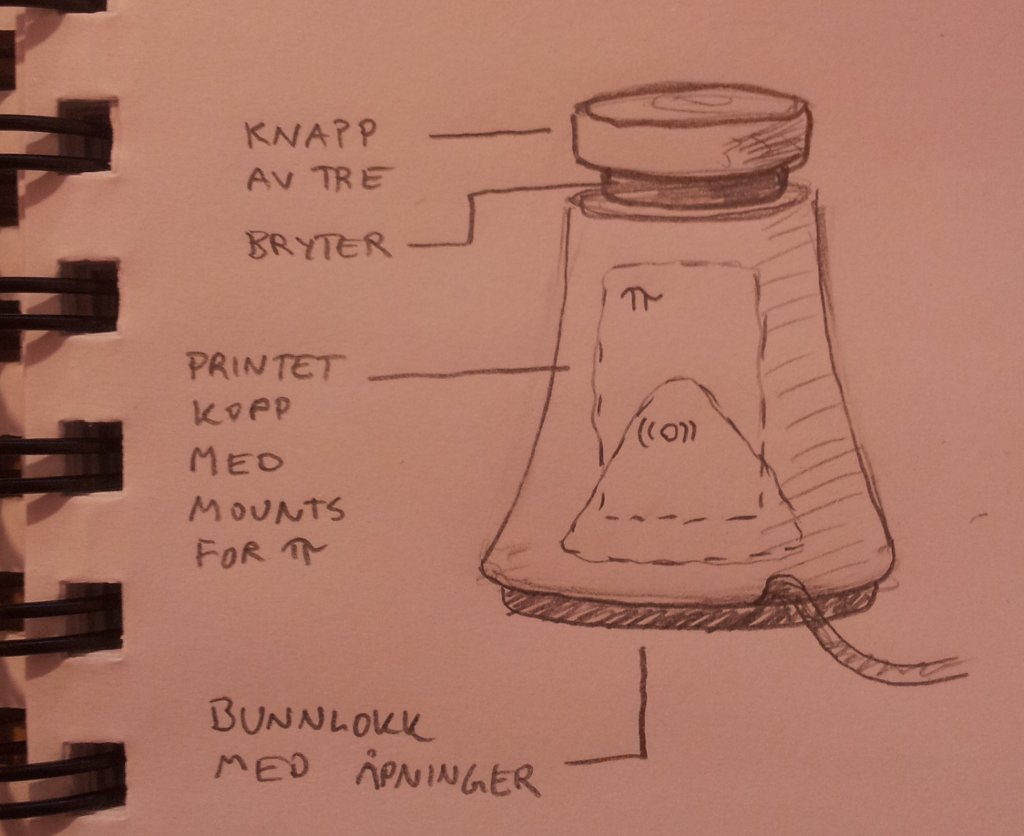 KNAPP
AV TRE
BRYTER
π
((O))
PRINTET
KOPP
MED
MOUNTS
FOR π
BUNNLOKK
MED ÅPNINGER